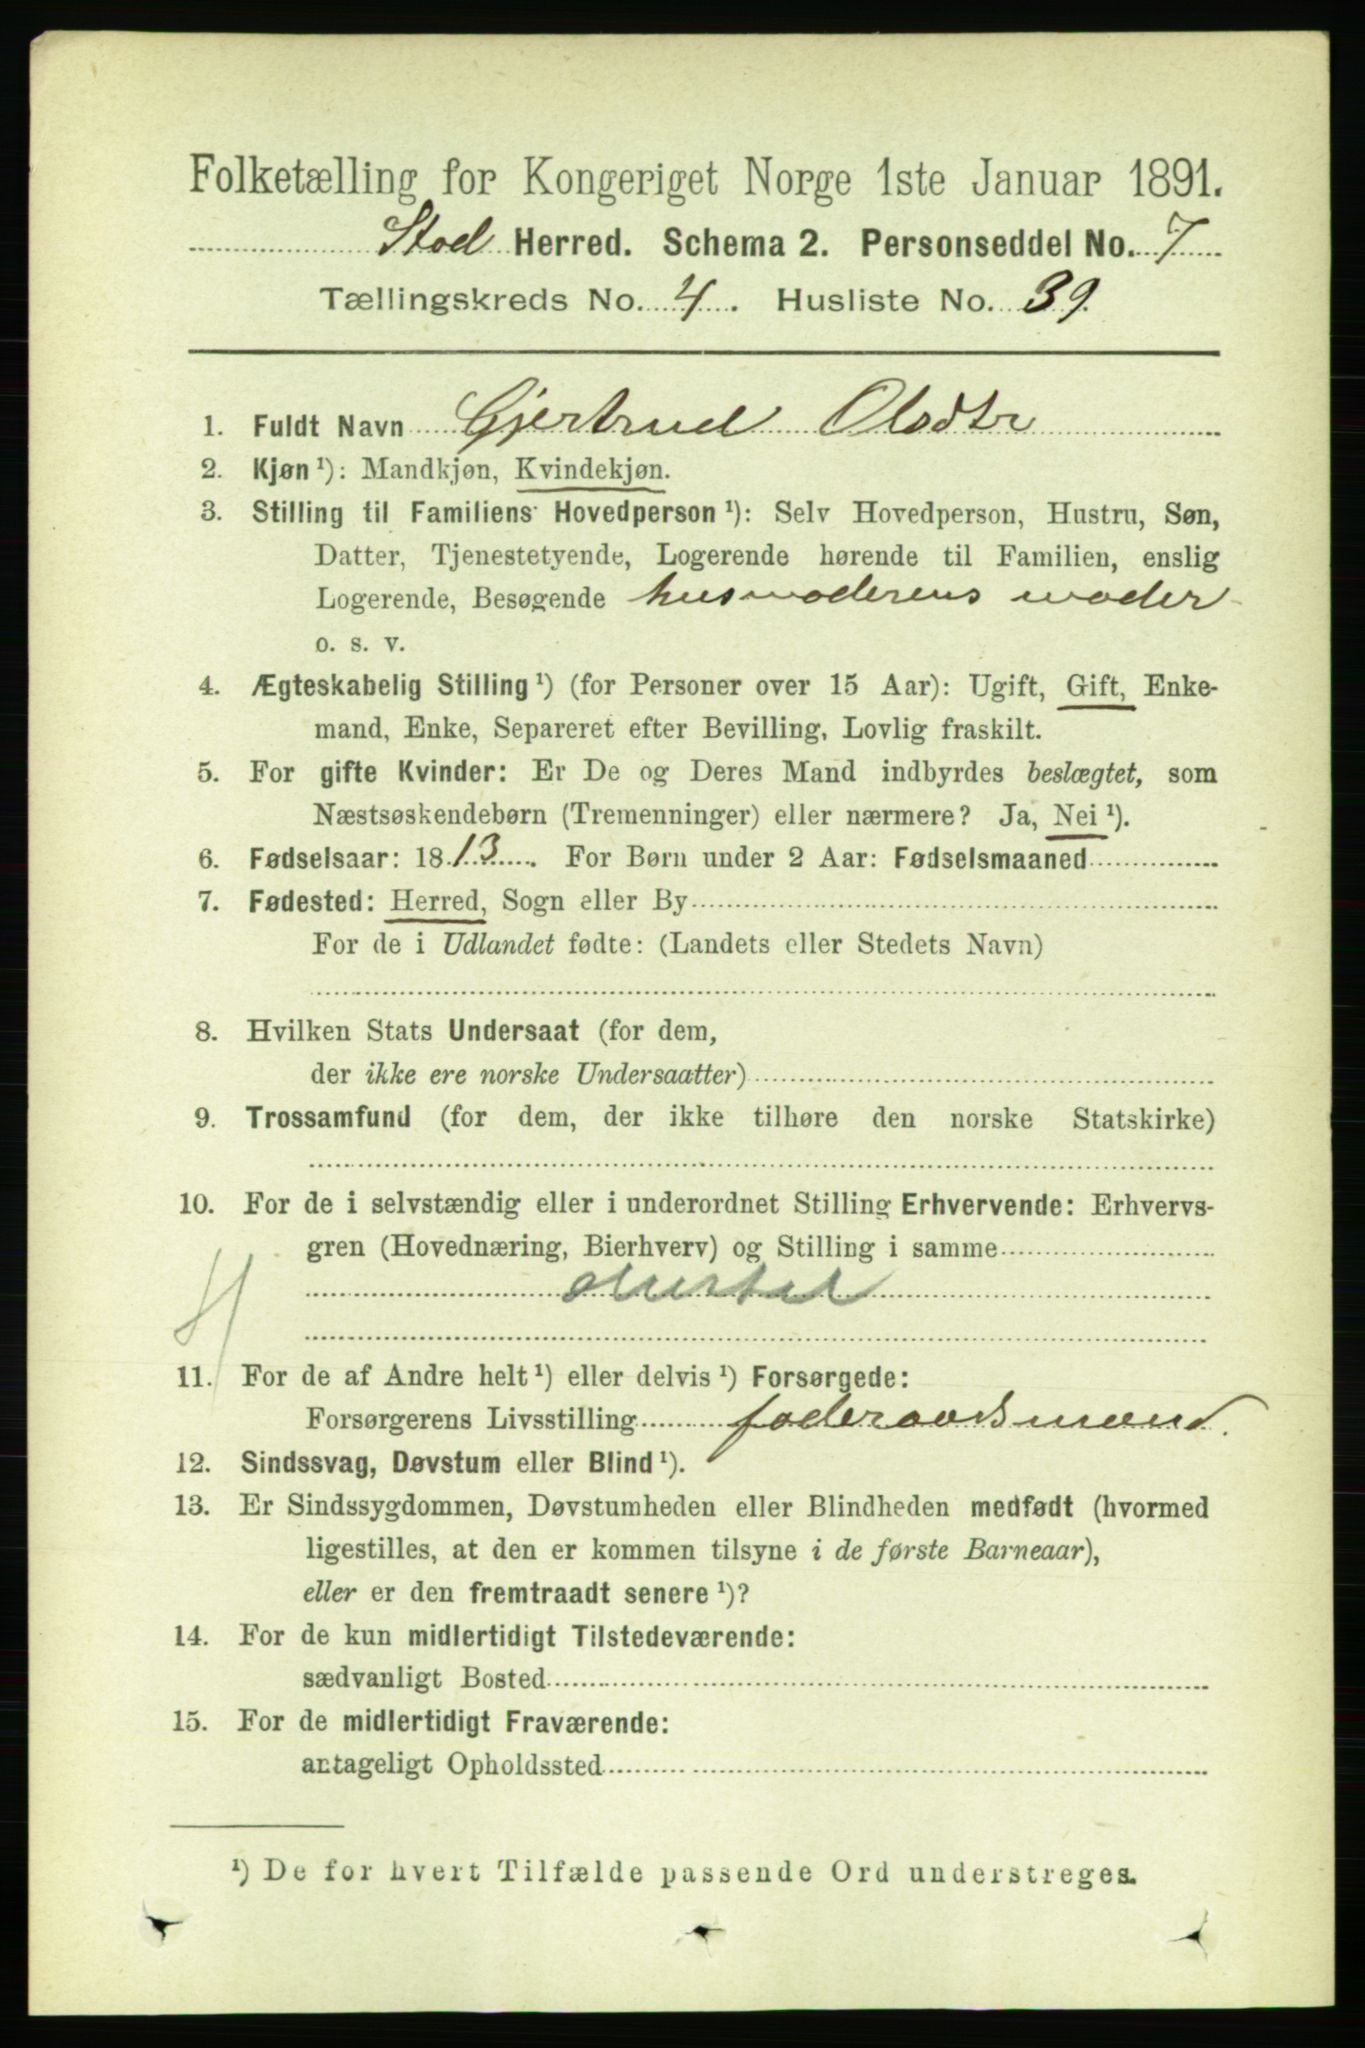 Folketælling for Kongeriget Norge 1ste Januar 1891.
Stod Herred. Schema 2. Personseddel No. 7
Tællingskreds No. 4. Husliste No. 39
1. Fuldt Navn Gjertrud Olsdtr
2. Kjøn ¹): Mandkjøn, Kvindekjøn.
3. Stilling til Familiens Hovedperson ¹): Selv Hovedperson, Hustru, Søn,
Datter, Tjenestetyende, Logerende hørende til Familien, enslig
Logerende, Besøgende husmoderens moder
o. s. v.
4. Ægteskabelig Stilling ¹) (for Personer over 15 Aar): Ugift, Gift, Enke-
mand, Enke, Separeret efter Bevilling, Lovlig fraskilt.
5. For gifte Kvinder: Er De og Deres Mand indbyrdes beslægtet, som
Næstsøskendebørn (Tremenninger) eller nærmere? Ja, Nei ¹).
6. Fødselsaar: 1813. For Børn under 2 Aar: Fødselsmaaned
7. Fødested: Herred, Sogn eller By
For de i Udlandet fødte: (Landets eller Stedets Navn)
8. Hvilken Stats Undersaat (for dem,
der ikke ere norske Undersaatter)
9. Trossamfund (for dem, der ikke tilhøre den norske Statskirke)
10. For de i selvstændig eller i underordnet Stilling Erhvervende: Erhvervs-
gren (Hovednæring, Bierhverv) og Stilling i samme
11. For de af Andre helt ¹) eller delvis ¹) Forsørgede:
Forsørgerens Livsstilling foderaadsmand.
12. Sindssvag, Døvstum eller Blind ¹).
13. Er Sindssygdommen, Døvstumheden eller Blindheden medfødt (hvormed
ligestilles, at den er kommen tilsyne i de første Barneaar),
eller er den fremtraadt senere ¹)?
14. For de kun midlertidigt Tilstedeværende:
sædvanligt Bosted
15. For de midlertidigt Fraværende:
antageligt Opholdssted
¹) De for hvert Tilfælde passende Ord understreges.